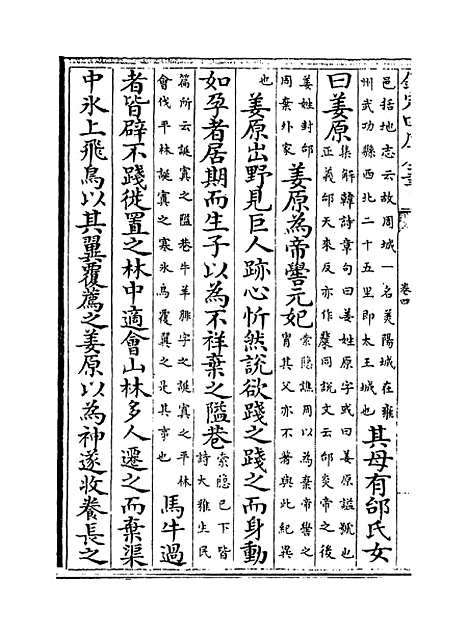 卷四
邑括地志云故周城一名美陽城在雍
州武功縣西北二十五里即太王城也
其母有邰氏女
曰姜原
集解韓詩章句曰姜姓原字或曰姜原諡號也
正義邰天來反亦作斄同說文云邰炎帝之後
姜姓封邰
周棄外家
姜原為帝嚳元妃
索隱譙周以為棄帝嚳之
胄其父亦不著與此紀異
也
姜原出野見巨人跡心忻然說欲踐之踐之而身動
如孕者居期而生子以為不祥棄之隘巷
索隱已下皆
詩大雅生民
篇所云誕寘之隘巷牛羊腓字之誕寘之平林
會伐平林誕寘之寒氷鳥覆翼之是其事也
馬牛過
者皆辟不踐徙置之林中適會山林多人遷之而棄渠
中氷上飛鳥以其翼覆薦之姜原以為神遂收養長之